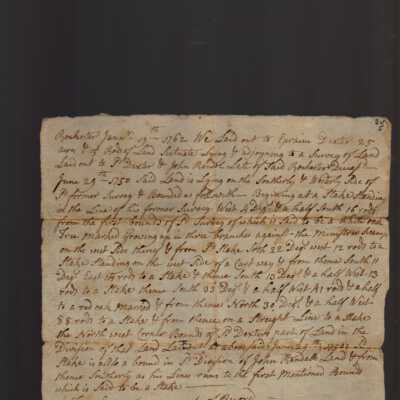 Rochester Janry 19th 1762 We Laid out to Ephraim Dexter 25
acres & of Rods of Land Situate Lying & adjoyning to a Survey of Land
Laid out to Sd Dexter & John Randel Late of Said Rochester Decest
June 29th 1750 Said Land is Lying on the Southerly & Westerly Side of
Sd former Survey & Bounded as followeth Begining at a Stake Standing
in the Line of his former Survey West Degs & a half South 16 rods
from the first bounds of Sd Survey which is Said to be a white
Tree Marked Growing up in three branches against the
on the west Side thereof & from Sd Stake Soth 22 Degs west 12 rods to a
Stake Standing on the west Side of a Cart way & from thence South 11
Degs East 149 rods to a Stake & thence South 10 Degs & a half West 13
rods to a Stake & thence South 33 Degs & a half West 41 rods & a half
to a red oak Marked & from thence North 30 Degs & a half West
88 rods to a Stake & from thence on a Straight Line to a Stake
the North west Corner Bounds of Sd Dexters part of Land in the
Division of that Land Laid out June 29th 1750 Sd
Stake is also a bound in Sd Division of John Randels Land & from
thence Southerly as his Line runs to the first Mentioned Bound
which is Said to be a Stake